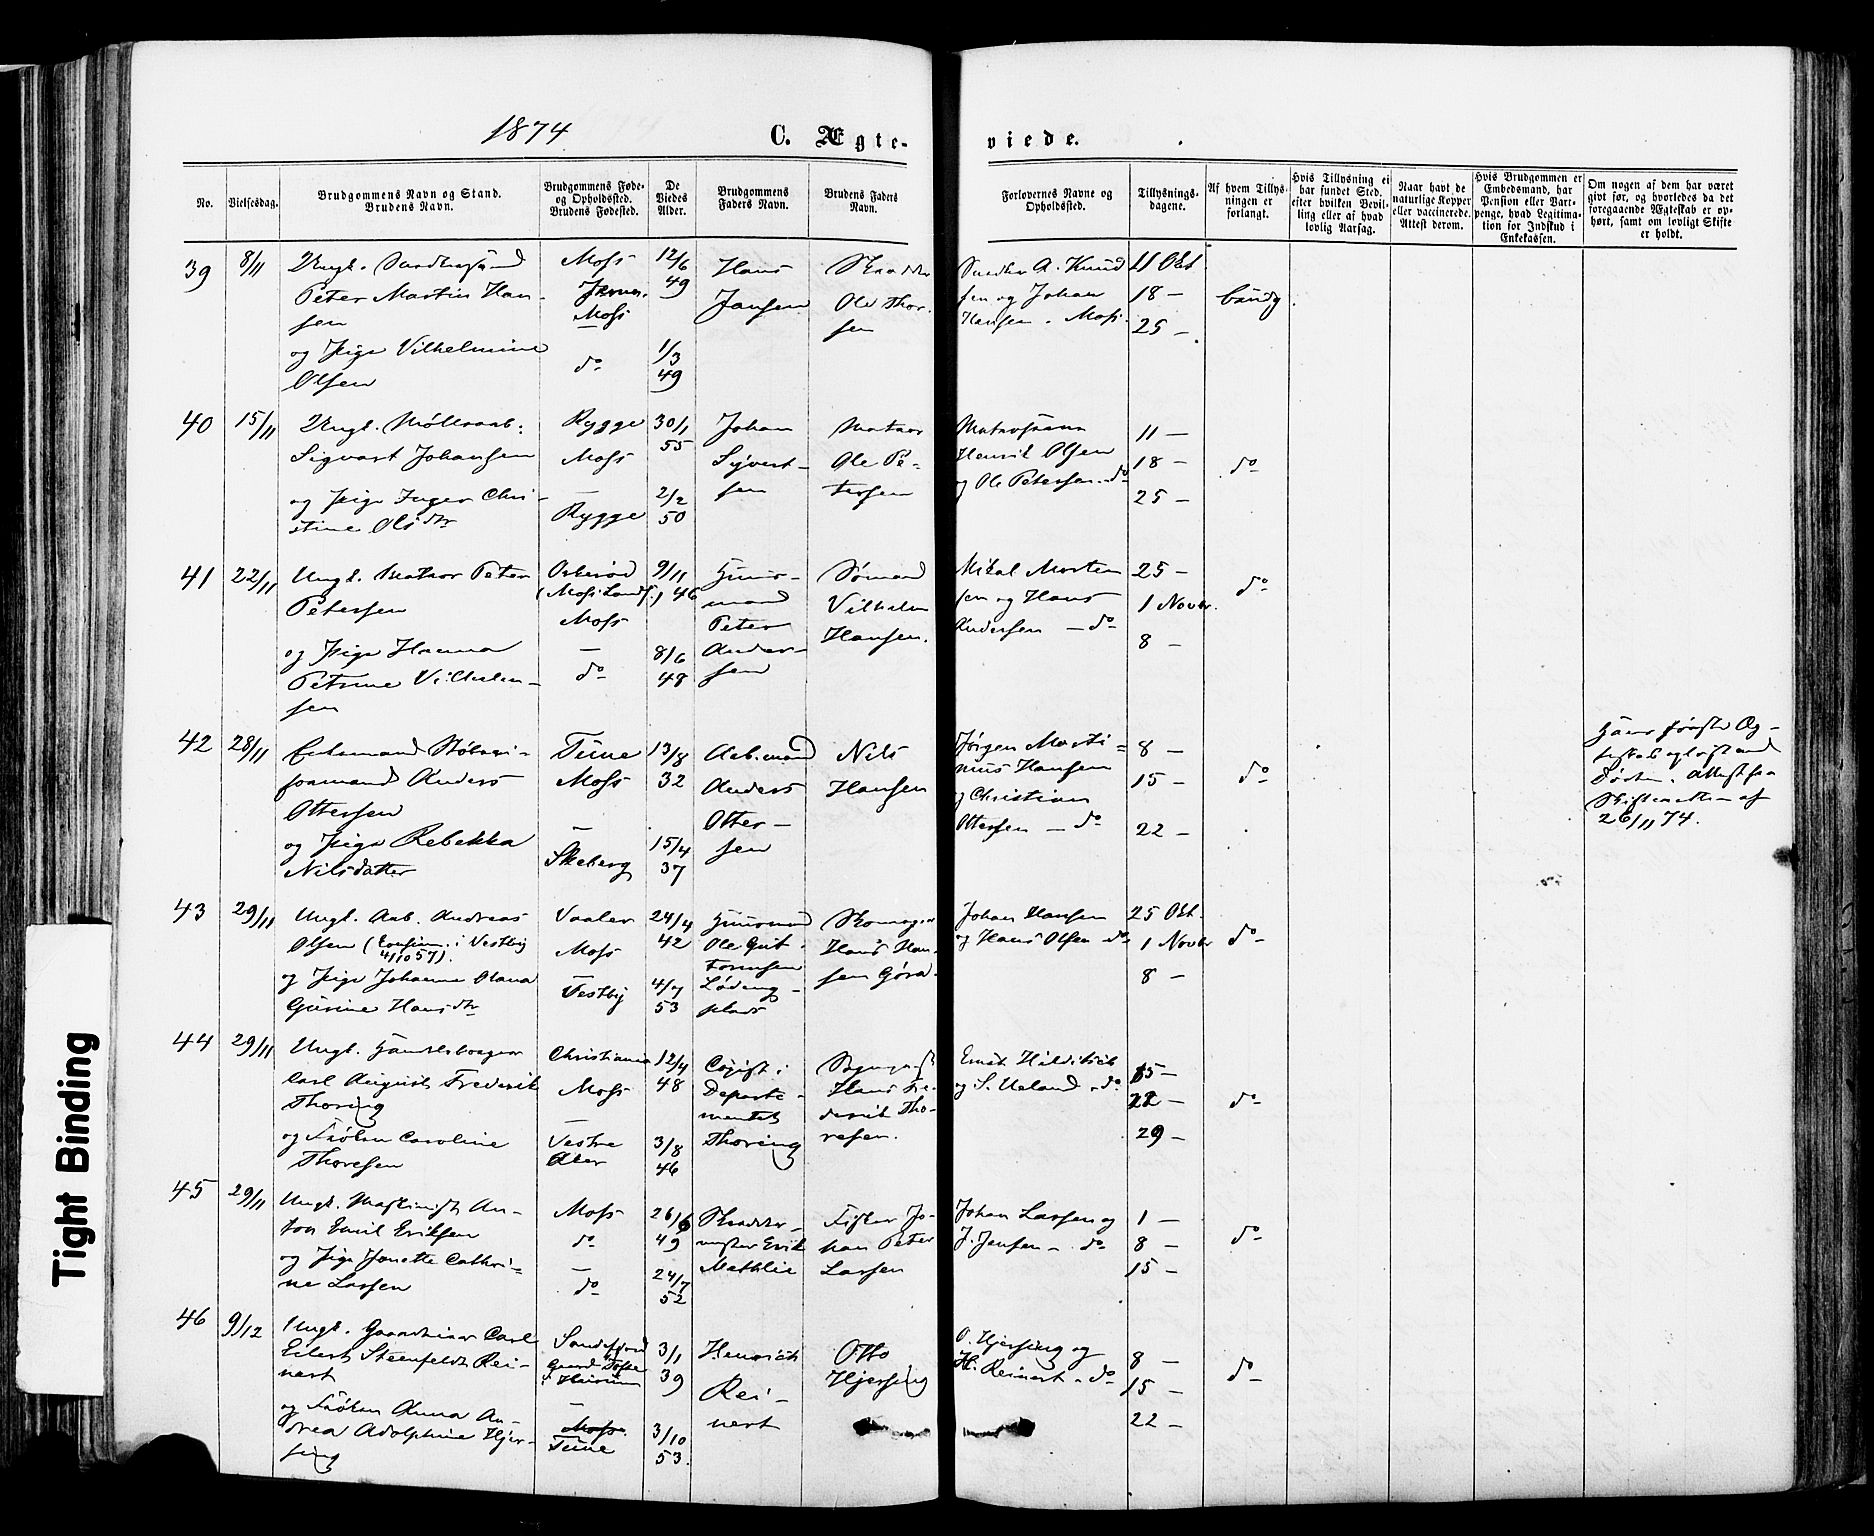 1874
C. Ægte-
viede.
No.
Vielsesdag.
Brudgommens Navn og Stand.
Brudens Navn.
Brudgommens Føde-
og Opholdssted.
Brudens Fødested.
De
Viedes
Alder.
Brudgommens
Faders Navn.
Brudens Faders
Navn.
Forlovernes Navne og
Opholdssted.
Tillysnings-
dagene.
Af hvem Tillys-
ningen er
forlangt.
Hvis Tillysning ei
har fundet Sted,
efter hvilken Bevil-
ling eller af hvad
lovlig Aarsag.
Naar havt de
naturlige Kopper
eller vaccinerede.
Attest derom.
Hvis Brudgommen er
Embedsmand, har
Pension eller Vart-
penge, hvad Legitima-
tion for Indskud i
Enkekassen.
Om nogen af dem har været
givt før, og hvorledes da det
foregaaende Ægteskab er op-
hørt, samt om lovligt Skifte
er holdt.
39
8/11
Ungk.
Peter Martin Han-
sen
og Pige Vilhelmine
Olsen
Moss
Moss
do
12/6
49
1/3
49
Hans
Jansen
Ole Thor-
sen
A. Knud
sen og Johan
Hansen. Moss.
11 Okt.
18 —
25 —
40
15/11
Ungk.
Sigvart Johansen
og Pige Inger Chri-
stine Olsdtr
Rygge
Moss
—
Rygge
30/1
55
2/2
50
Johan
Syvert-
sen
Matros
Ole Pe-
tersen
Henrik Olsen
og Ole Petersen do
11 —
18 —
25 —
do
41
22/11
Ungk. Matros Peter
Petersen
og Pige Hanna
Petrine Vilhelm-
sen
(Moss Lands.)
Moss
—
do
9/11
46
8/6
48
Huus-
mand
Peter
Ander-
sen
Sømand
Vilhelm
Hansen.
Mikal Morten
sen og Hans
Andersen — do
25 —
1 Novbr.
8 —
do
42
28/11
Enkemand
Anders
Ottersen
og Pige Rebekka
Nilsdatter
Tune
Moss
—
Skeberg
13/8
32
15/4
37
Arb.mand
Anders
Otter-
sen
Nils
Hansen
Jørgen Marti-
nius Hansen
og Christian
Ottersen — do
8 —
15 —
22 —
do
Hans første Æg-
Døden. Attest fra
af
26/11 74.
43
29/11
Ungk. Arb. Andreas
Olsen i Vestby
og Pige Johanne Olava
Hansdtr
Vaaler
Moss
Vestby
24/4
42
4/7
53
Huusmd
Ole Gut-
tormsen
Skomager
Hans Han-
sen
Johan Hansen
og Hans Olsen do
25 Okt.
1 Novbr
8 —
do
44
29/11
Ungk. Handelsborger
Carl August Frederik
Thoring
og Frøken Caroline
Thoresen
Christiania
Moss
—
Vestre
Aker
12/4
48
3/8
46
Copist i
Departe-
mentet
Thoring
Sogneprest
Hans Fre-
derik Tho-
resen.
Ernst Hilditsch
og S. Ueland. do
15 —
22 —
29 —
do
45
29/11
Ungk. Maskinist An-
ton Emil Eriksen
og Pige Jonette Cathri-
ne Larsen
Moss
do
—
do
26/6
49
24/7
52
Skrædder-
mester Erik
Mathlie
Fisker Jo-
han Peter
Larsen
Johan Larsen og
J. Jensen — do
1 —
8 —
15 —
do
46
9/12
Ungk. Gaardeier Carl
Eilert Steenfeldt Rei-
nert
og Frøken Anna An-
drea Adolphine Hjer-
sing
Sandefjord
—
Moss
Tune
3/1
39
3/10
53.
Henrich
Rei-
nert
Otto
Hjersing
O. Hjersing og
H. Reinert. do
8 —
15 —
22 —
do
Tight Binding